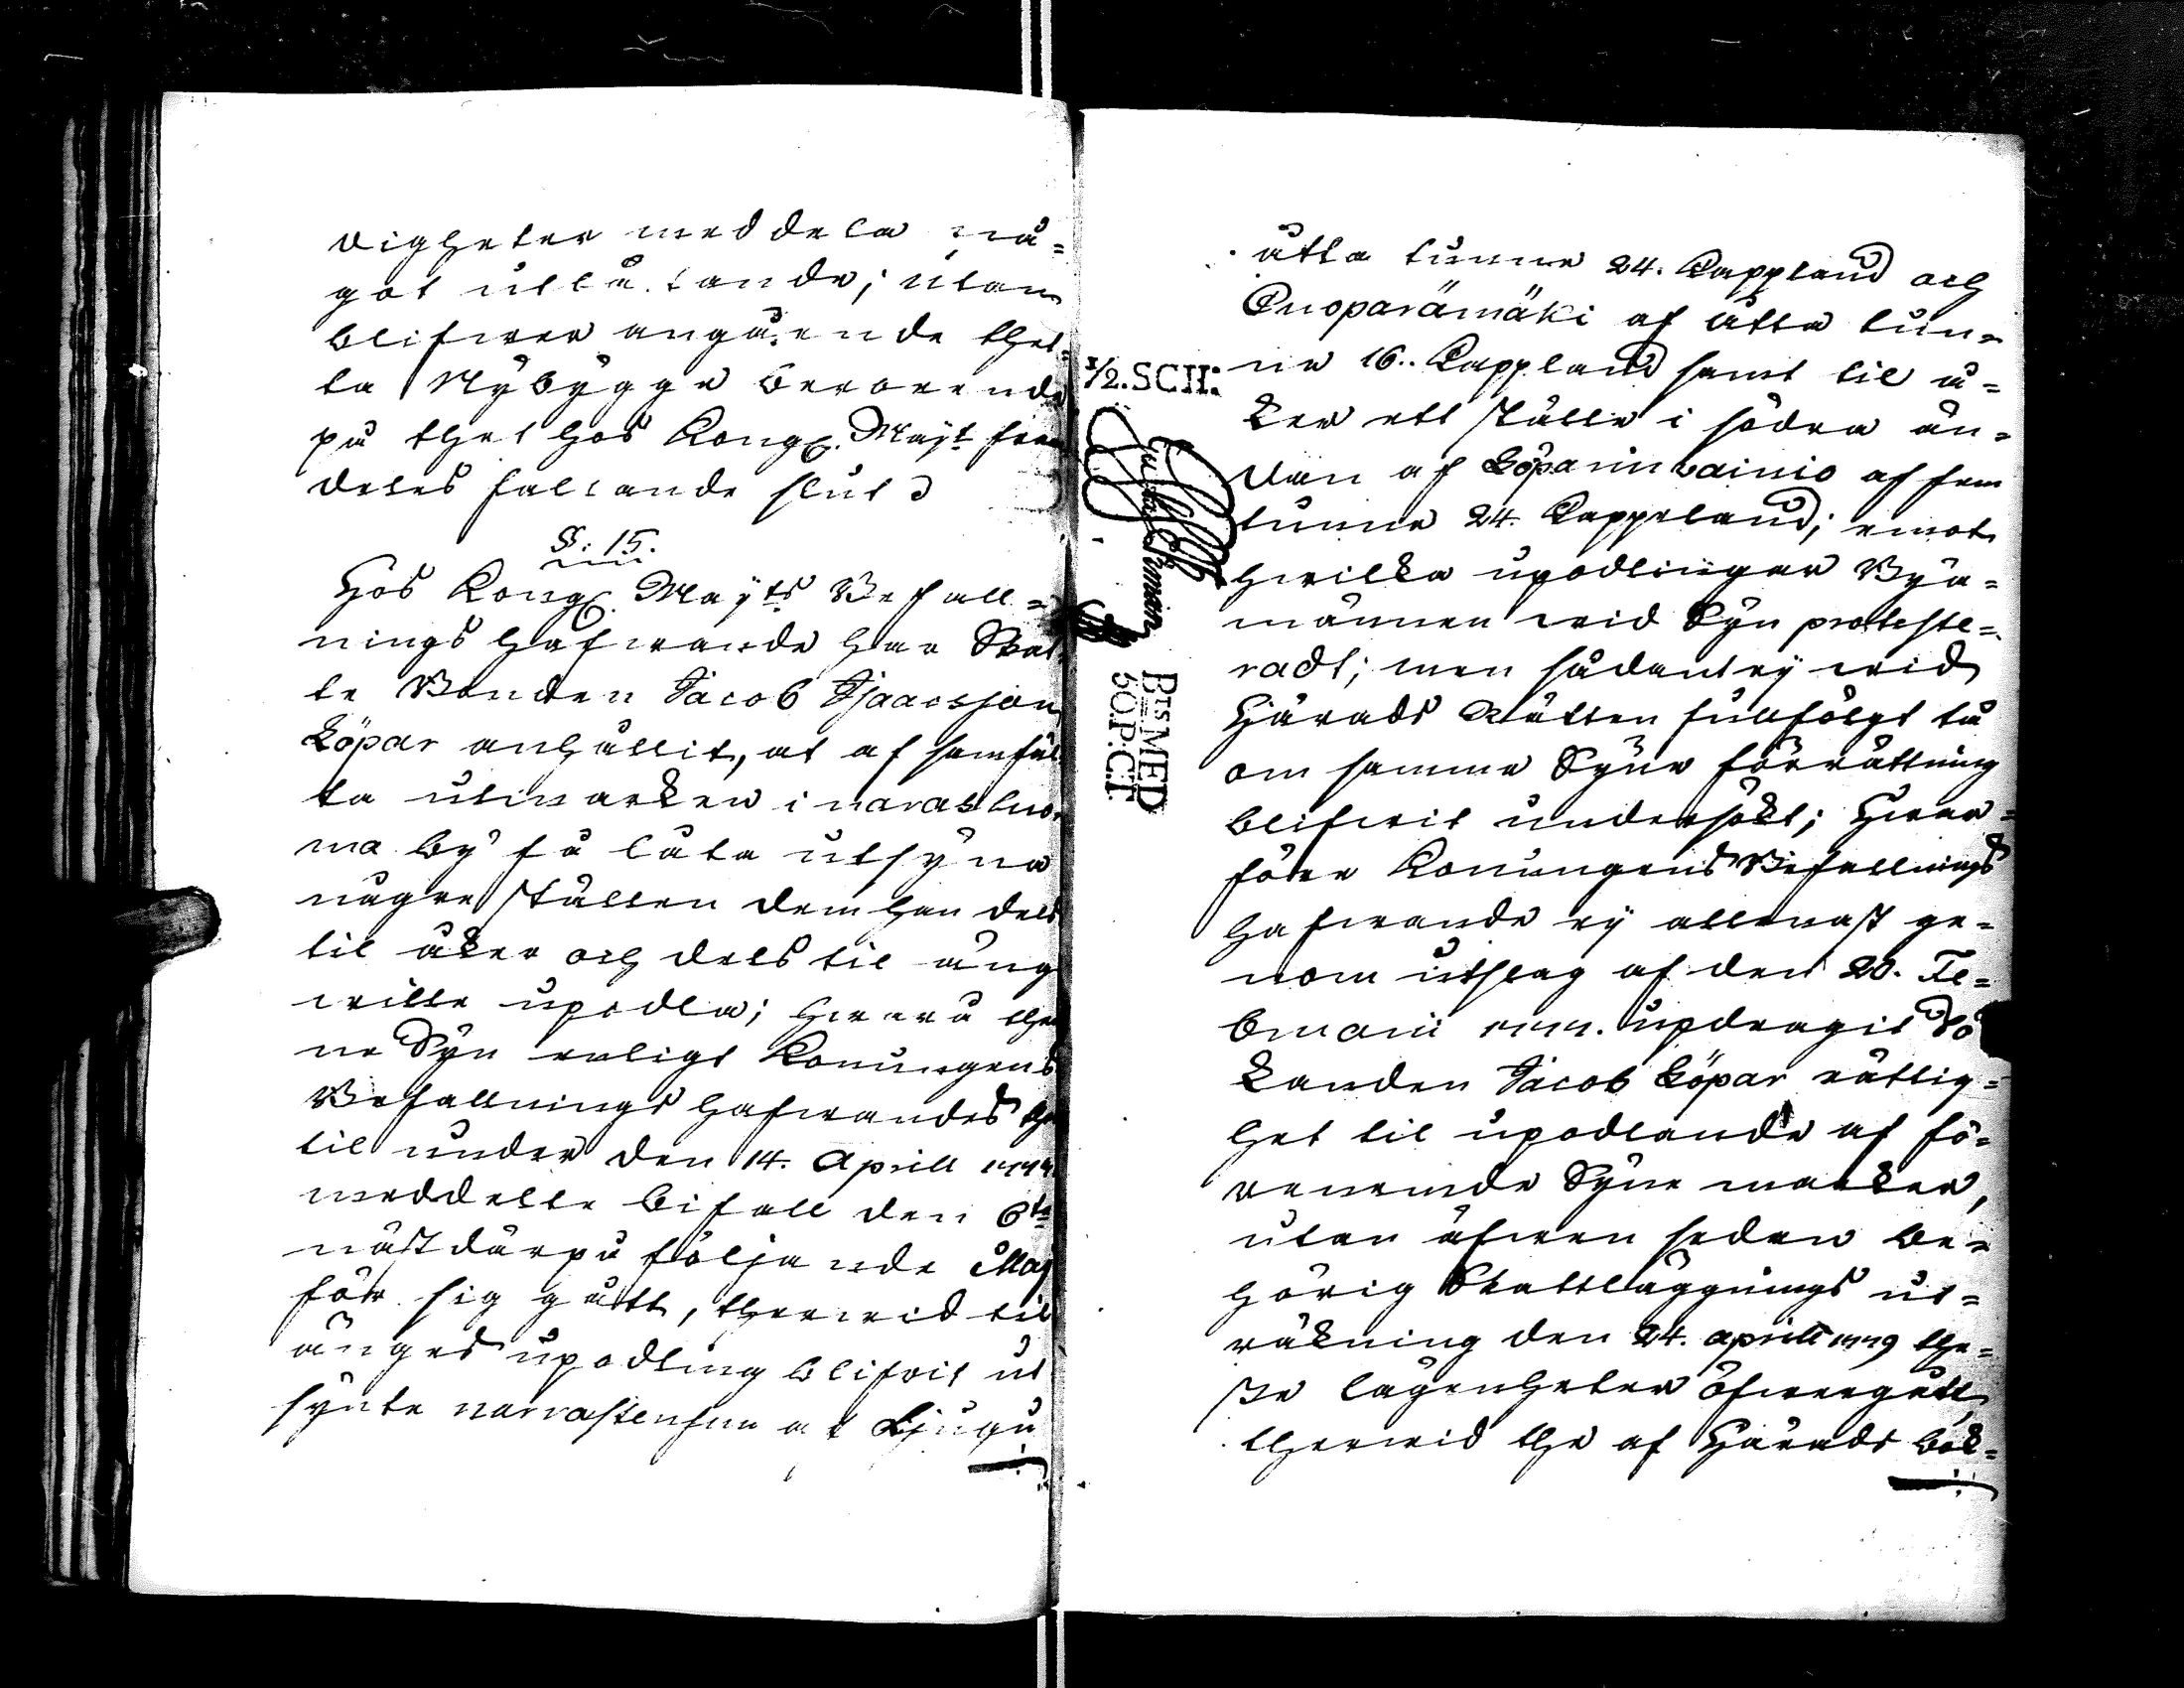 digheter meddela nå=
got utlåtande; utan
blifwer angående thet=
ta Nybygge beroende
på thet hos Kongl. Mayt fram
deles fallande slut
§: 15.
Hos Kongl. Mayts Befall=
nings Hafwande har Skat
te Bonden Jacob Isaacsson
Köpar anhållit, at af samfäl
ta utmarken i
ma by få låta utsyna
någre ställen dem han dels
til åker och dels til äng
wille upodla; Hwarå then
ne Syn enligt Konungens
Befallnings Hafwandes ther
til under den 14. Aprill 1777
meddelte bifall den 6te
näst därpå följande Maj
för sig gått, therwid til
ängs upodling blifvit ut
synte at tjugu
åtta tunne 24. Kappland och
Cuoparämäki af åtta tun=
ne 16. Kappland samt til å=
ker ett ställe i södra än=
dan af Köparinvainio af fem
tunne 24. Kappeland; emot
hwilka upodlingar Bya=
männen wid Syn proteste=
radt; men sådant ej wid
Härads Rätten fullfölgt då
om samma Syne förrättning
blifwit undersökt; Hwar=
före Konungens Befallnings
hafwande ej allenast ge=
nom utslag af den 20. Fe=
bruarii 1777. updragit Sö
kanden Jacob Köpar rättig=
het til upodlande af fö=
renemde Syne marker,
utan äfwen sedan be=
hörig Skattläggnings ut=
räkning den 24. aprill 1779 the=
sse lägenheter öfwergått,
therwid the af Härads bok=
1/2. SCH:
Bts MED
5 Ö.P:C.T.